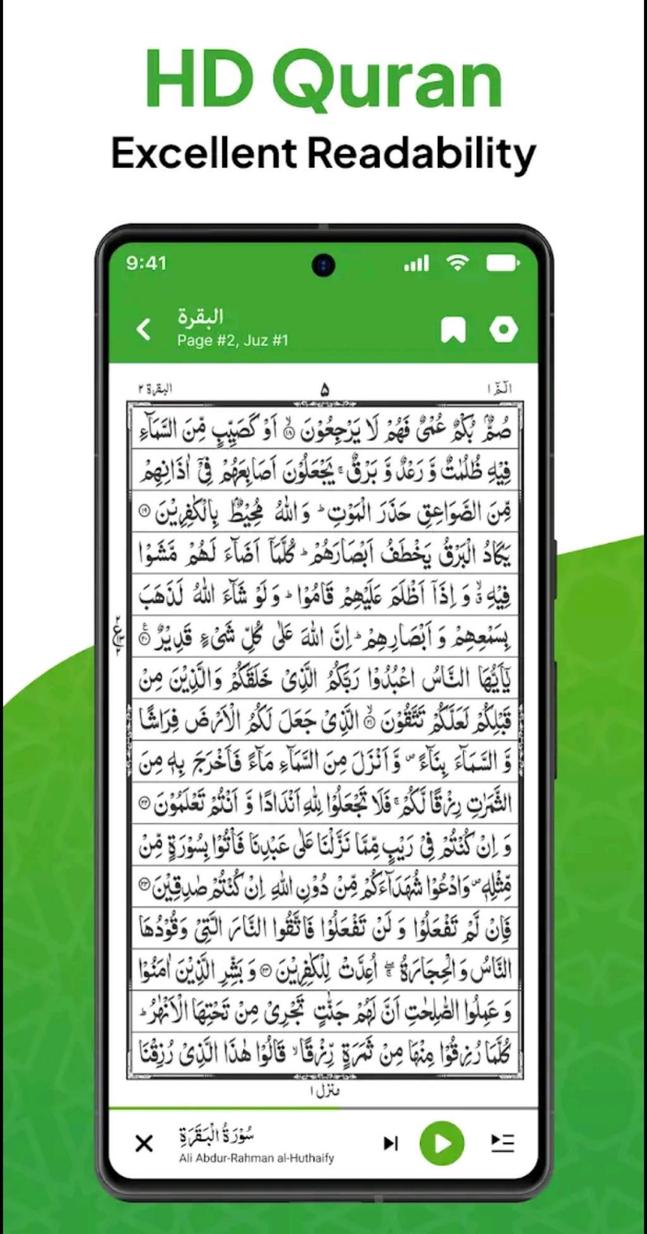 HD Quran
Excellent Readability
9:41
البقرة
Page #2, Juz #1
الٓمّٓ ١
۵
البقرة ٢
صُمٌّۢ بُكْمٌ عُمْیٌ فَهُمْ لَا یَرْجِعُوْنَ ۙ﴿۱۸﴾ اَوْ كَصَیِّبٍ مِّنَ السَّمَآءِ
فِیْهِ ظُلُمٰتٌ وَّ رَعْدٌ وَّ بَرْقٌ ۚ یَجْعَلُوْنَ اَصَابِعَهُمْ فِیْۤ اٰذَانِهِمْ
مِّنَ الصَّوَاعِقِ حَذَرَ الْمَوْتِ ؕ وَ اللّٰهُ مُحِیْطٌۢ بِالْكٰفِرِیْنَ ﴿۱۹﴾
یَكَادُ الْبَرْقُ یَخْطَفُ اَبْصَارَهُمْ ؕ كُلَّمَاۤ اَضَآءَ لَهُمْ مَّشَوْا
فِیْهِ ۙۗ وَ اِذَاۤ اَظْلَمَ عَلَیْهِمْ قَامُوْا ؕ وَ لَوْ شَآءَ اللّٰهُ لَذَهَبَ
بِسَمْعِهِمْ وَ اَبْصَارِهِمْ ؕ اِنَّ اللّٰهَ عَلٰی كُلِّ شَیْءٍ قَدِیْرٌ ﴿۲۰﴾
یٰۤاَیُّهَا النَّاسُ اعْبُدُوْا رَبَّكُمُ الَّذِیْ خَلَقَكُمْ وَ الَّذِیْنَ مِنْ
قَبْلِكُمْ لَعَلَّكُمْ تَتَّقُوْنَ ۙ﴿۲۱﴾ الَّذِیْ جَعَلَ لَكُمُ الْاَرْضَ فِرَاشًا
وَّ السَّمَآءَ بِنَآءً ۪ وَّ اَنْزَلَ مِنَ السَّمَآءِ مَآءً فَاَخْرَجَ بِهٖ مِنَ
الثَّمَرٰتِ رِزْقًا لَّكُمْ ۚ فَلَا تَجْعَلُوْا لِلّٰهِ اَنْدَادًا وَّ اَنْتُمْ تَعْلَمُوْنَ ﴿۲۲﴾
وَ اِنْ كُنْتُمْ فِیْ رَیْبٍ مِّمَّا نَزَّلْنَا عَلٰی عَبْدِنَا فَاْتُوْا بِسُوْرَةٍ مِّنْ
مِّثْلِهٖ ۪ وَ ادْعُوْا شُهَدَآءَكُمْ مِّنْ دُوْنِ اللّٰهِ اِنْ كُنْتُمْ صٰدِقِیْنَ ﴿۲۳﴾
فَاِنْ لَّمْ تَفْعَلُوْا وَ لَنْ تَفْعَلُوْا فَاتَّقُوا النَّارَ الَّتِیْ وَ قُوْدُهَا
النَّاسُ وَ الْحِجَارَةُ ۖۚ اُعِدَّتْ لِلْكٰفِرِیْنَ ﴿۲۴﴾ وَ بَشِّرِ الَّذِیْنَ اٰمَنُوْا
وَ عَمِلُوا الصّٰلِحٰتِ اَنَّ لَهُمْ جَنّٰتٍ تَجْرِیْ مِنْ تَحْتِهَا الْاَنْهٰرُ ؕ
كُلَّمَا رُزِقُوْا مِنْهَا مِنْ ثَمَرَةٍ رِّزْقًا ۙ قَالُوْا هٰذَا الَّذِیْ رُزِقْنَا
منزل ١
سُوْرَةُ الْبَقَرَةِ
Ali Abdur-Rahman al-Huthaify